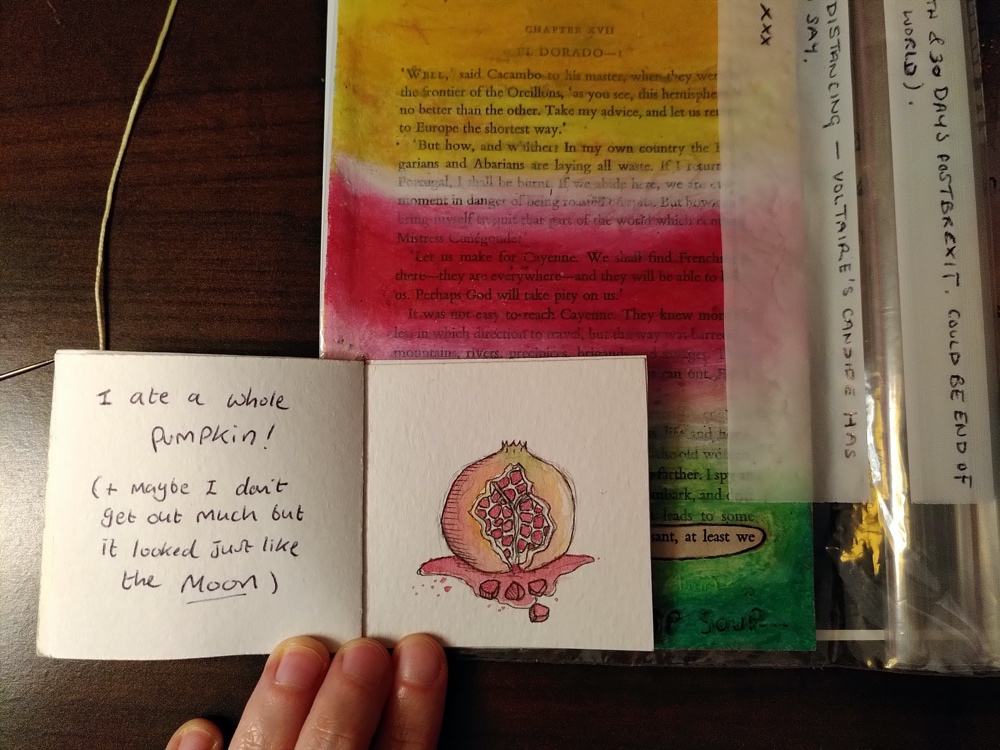 I ate a whole
pumpkin!
(+ maybe I don't
get out much but
it looked just like
the Moon)
CHAPTER XVII
EL DORADO—I
'WELL,' said Cacambo to his master, when they
the frontier of the Oreillons, 'as you see, this
no better than the other. Take my advice, and let us
to Europe the shortest way.'
'But how, and whither? In my own country the
garians and Abarians are laying all waste. If I
Portugal, I shall be burnt. If we abide here, we are
moment in danger of being roasted But
bring myself to quit that part of the world which
Mistress Cunégonde?'
'Let us make for Cayenne. We shall find
there—they are everywhere—and they will be able to
us. Perhaps God will take pity on us.'
It was not easy to reach Cayenne. They knew
less in which direction to travel, but the way was
mountains, rivers, precipices,
can out.
life and
the old
farther. I
and
leads to some
at least we
SOUP
XXX
DISTANCING — VOLTAIRE'S CANDIDE HAS
SAY.
& 30 DAYS POSTBREXIT. COULD BE END OF
WORLD).